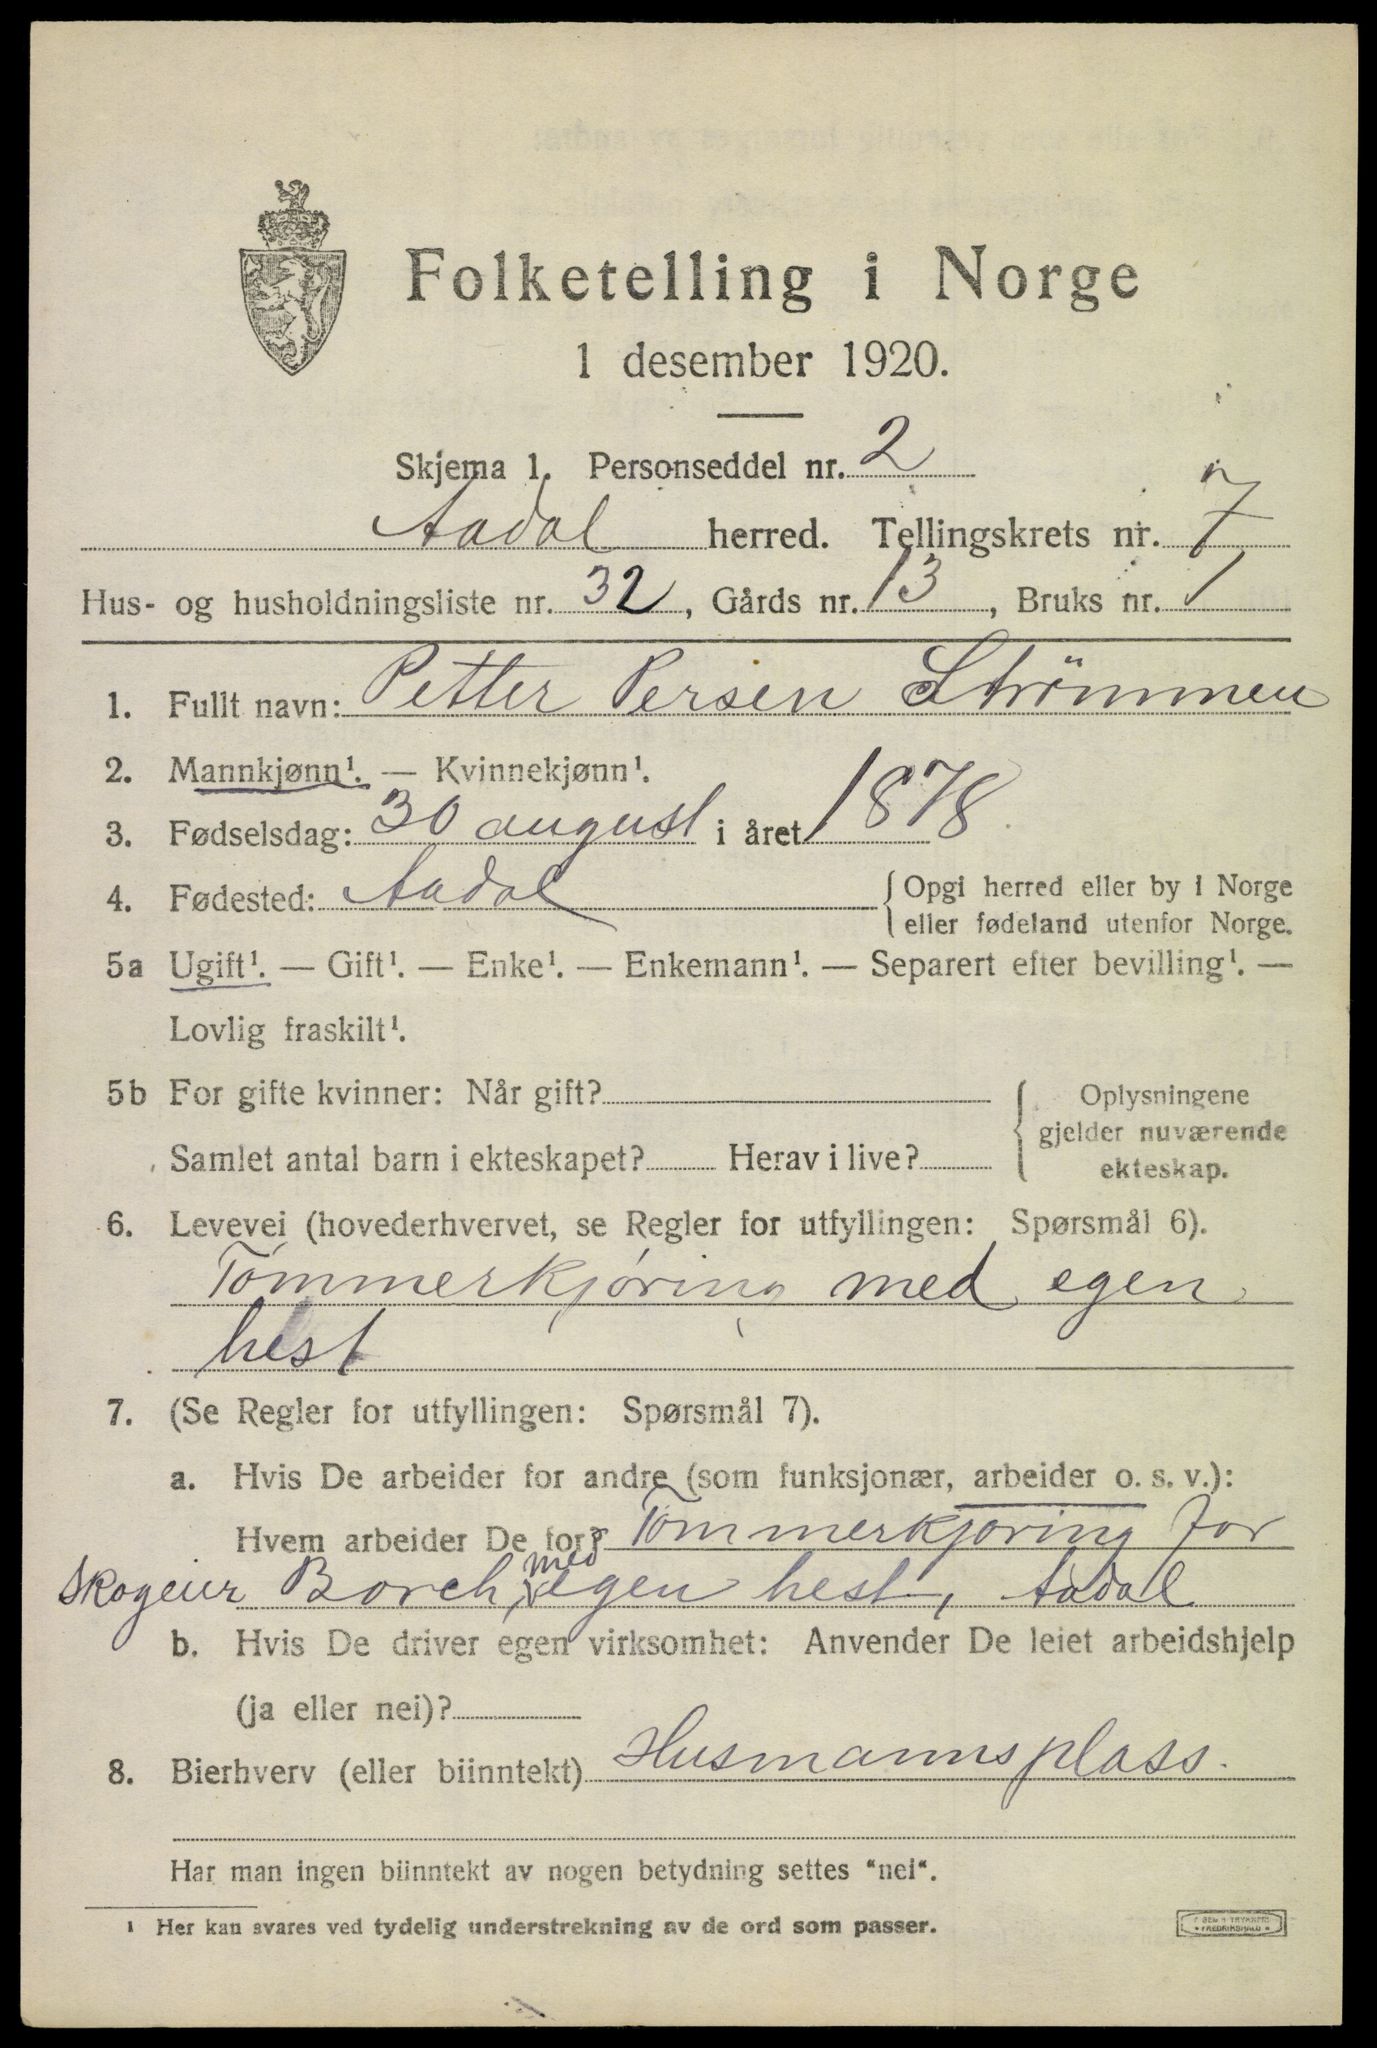 Folketelling i Norge
1 desember 1920.
Skjema 1. Personseddel nr. 2
Aadal herred. Tellingskrets nr. 7
Hus- og husholdningsliste nr. 32, Gårds nr. 13, Bruks nr. 1
1. Fullt navn: Petter Persen Strömmen
2. Mannkjønn¹. — Kvinnekjønn¹.
3. Fødselsdag: 30 august i året 1878
4. Fødested: Aadal { Opgi herred eller by i Norge
eller fødeland utenfor Norge.
5a Ugift¹. — Gift¹. — Enke¹. — Enkemann¹. — Separert efter bevilling¹. —
Lovlig fraskilt¹.
5b For gifte kvinner: Når gift? { Oplysningene
gjelder nuværende
Samlet antal barn i ekteskapet? Herav i live? ekteskap.
6. Levevei (hovederhvervet, se Regler for utfyllingen: Spørsmål 6).
Tømmerkjøring med egen
hest
7. (Se Regler for utfyllingen: Spørsmål 7).
a. Hvis De arbeider for andre (som funksjonær, arbeider o. s. v.):
Hvem arbeider De for? Tømmerkjøring for
Skogeier Borch, med egen hest, Aadal
b. Hvis De driver egen virksomhet: Anvender De leiet arbeidshjelp
(ja eller nei)?
8. Bierhverv (eller biinntekt) Husmannsplass.
Har man ingen biinntekt av nogen betydning settes "nei".
¹ Her kan svares ved tydelig understrekning av de ord som passer.